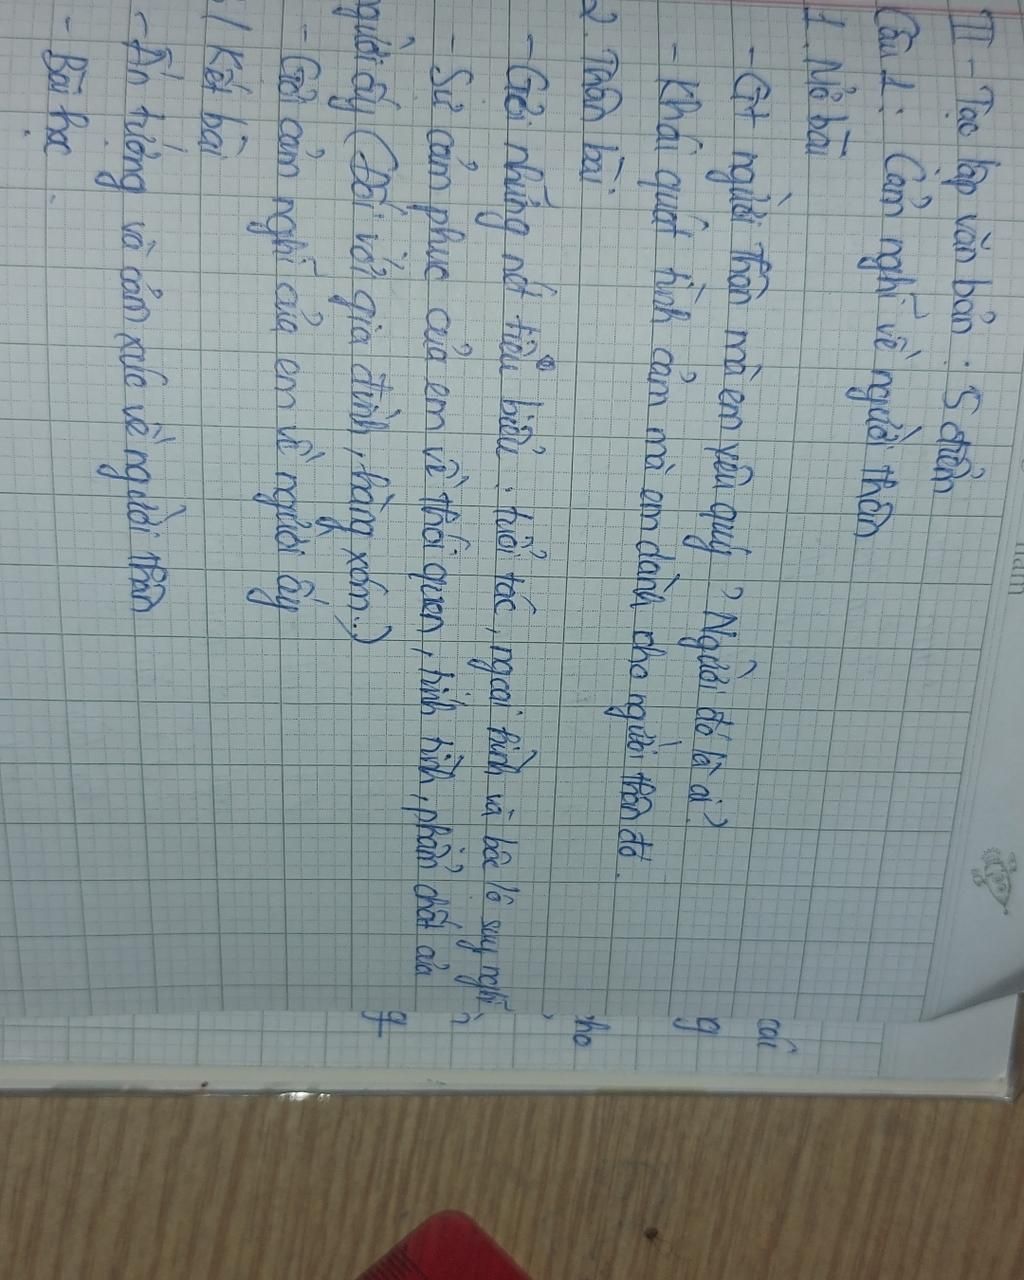 II - Tạo lập văn bản : 5 điểm
Câu 1: Cảm nghĩ về người thân
1. Mở bài
- Gt người thân mà em yêu quý ? Người đó là ai?
- Khái quát tình cảm mà em dành cho người thân đó.
2. Thân bài
- Gợi những nét tiêu biểu : tuổi tác, ngoại hình và bộc lộ suy nghĩ
- Sự cảm phục của em về thói quen, tính tình, phẩm chất của
người ấy (Đối với gia đình, hàng xóm..)
- Gợi cảm nghĩ của em về người ấy
/ Kết bài
- Ấn tượng và cảm xúc về người thân
- Bài học